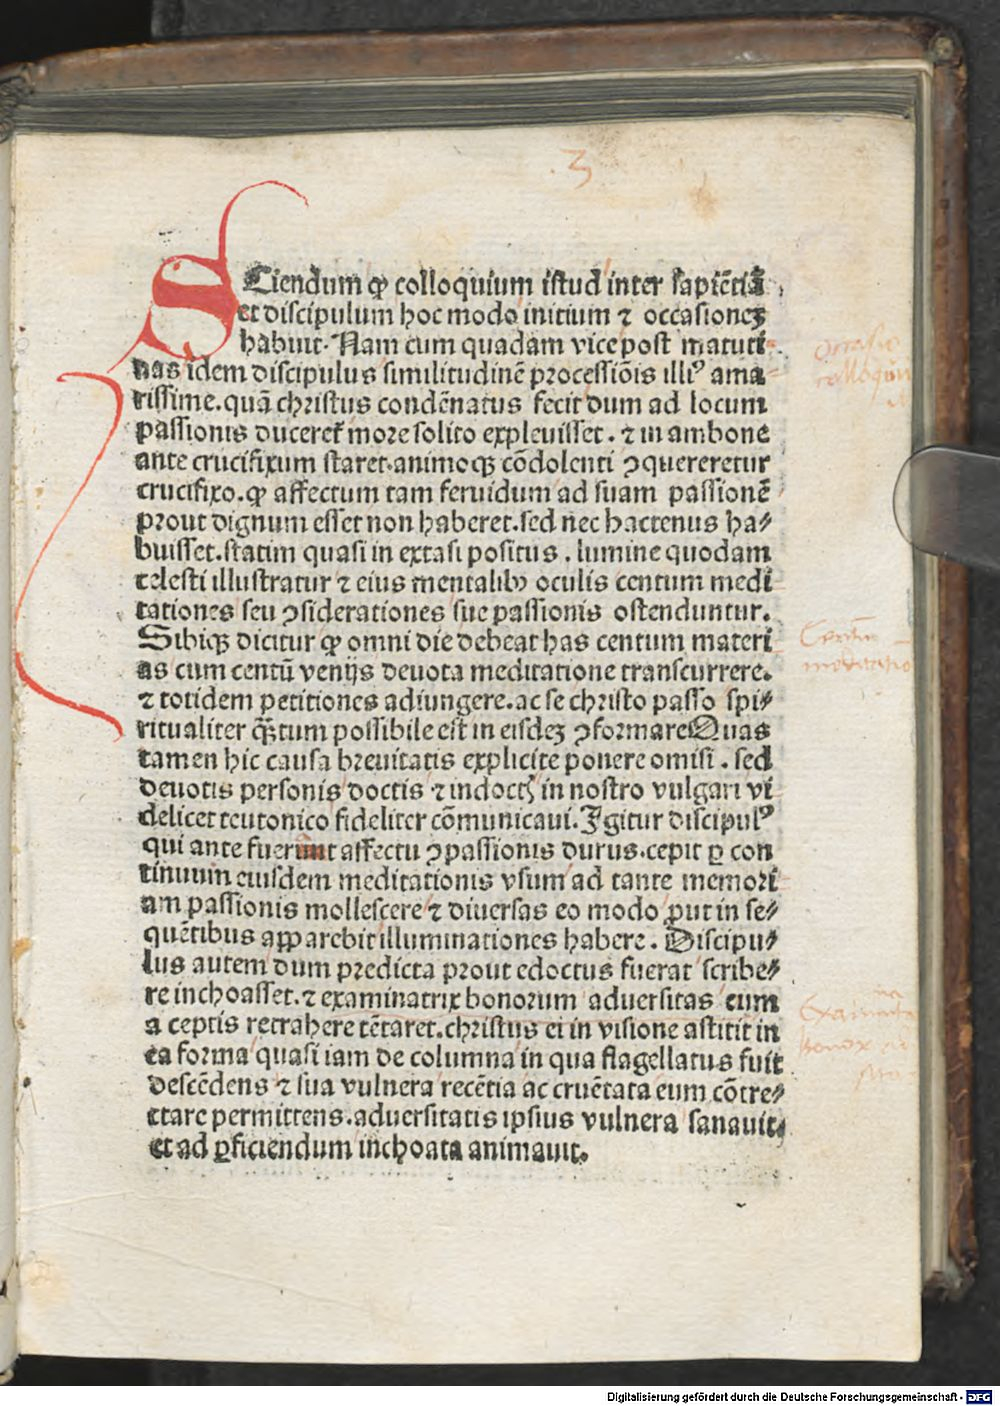 3
SCiendum ꝙ colloquium istud inter sapiẽtiã
et discipulum hoc modo initium ⁊ occasioneꝫ
habuit. Nam cum quadam vice post matuti
nas idem discipulus similitudinẽ processiõis illiꝰ ama
rissime. quã christus condẽnatus fecit dum ad locum
passionis duceret᷑ more solito expleuisset. ⁊ in ambone
ante crucifixum staret. animoqꝫ cõdolenti ꝯquereretur
crucifixo. ꝙ affectum tam feruidum ad suam passionẽ
prout dignum esset non haberet. sed nec hactenus ha⸗
buisset. statim quasi in extasi positus. lumine quodam
celesti illustratur ⁊ eius mentalibꝰ oculis centum medi
tationes seu ꝯsiderationes sue passionis ostenduntur.
Sibiqꝫ dicitur ꝙ omni die debeat has centum materi
as cum centũ venijs deuota meditatione transcurrere.
⁊ totidem petitiones adiungere. ac se christo passo spi⸗
ritualiter qȝ̃tum possibile est in eisdeꝫ ꝯformare Quas
tamen hic causa breuitatis explicite ponere omisi. sed
deuotis personis doctis ⁊ indoctꝭ in nostro vulgari vi
delicet teutonico fideliter cõmunicaui. Igitur discipulꝰ
qui ante fuerat affectu ꝯpassionis durus. cepit ꝑ con
tinuum eiusdem meditationis vsum ad tante memori
am passionis mollescere ⁊ diuersas eo modo ꝓut in se⸗
quẽtibus apparebit illuminationes habere. Discipu⸗
lus autem dum predicta prout edoctus fuerat scribe⸗
re inchoasset. ⁊ examinatrix bonorum aduersitas eum
a ceptis retrahere tẽtaret. christus ei in visione astitit in
ea forma quasi iam de columna in qua flagellatus fuit
descẽdens ⁊ sua vulnera recẽtia ac cruẽtata eum cõtre⸗
ctare permittens. aduersitatis ipsius vulnera sanauit.
et ad ꝑficiendum inchoata animauit.
Digitalisierung gefördert durch die Deutsche Forschungsgemeinschaft - DFG